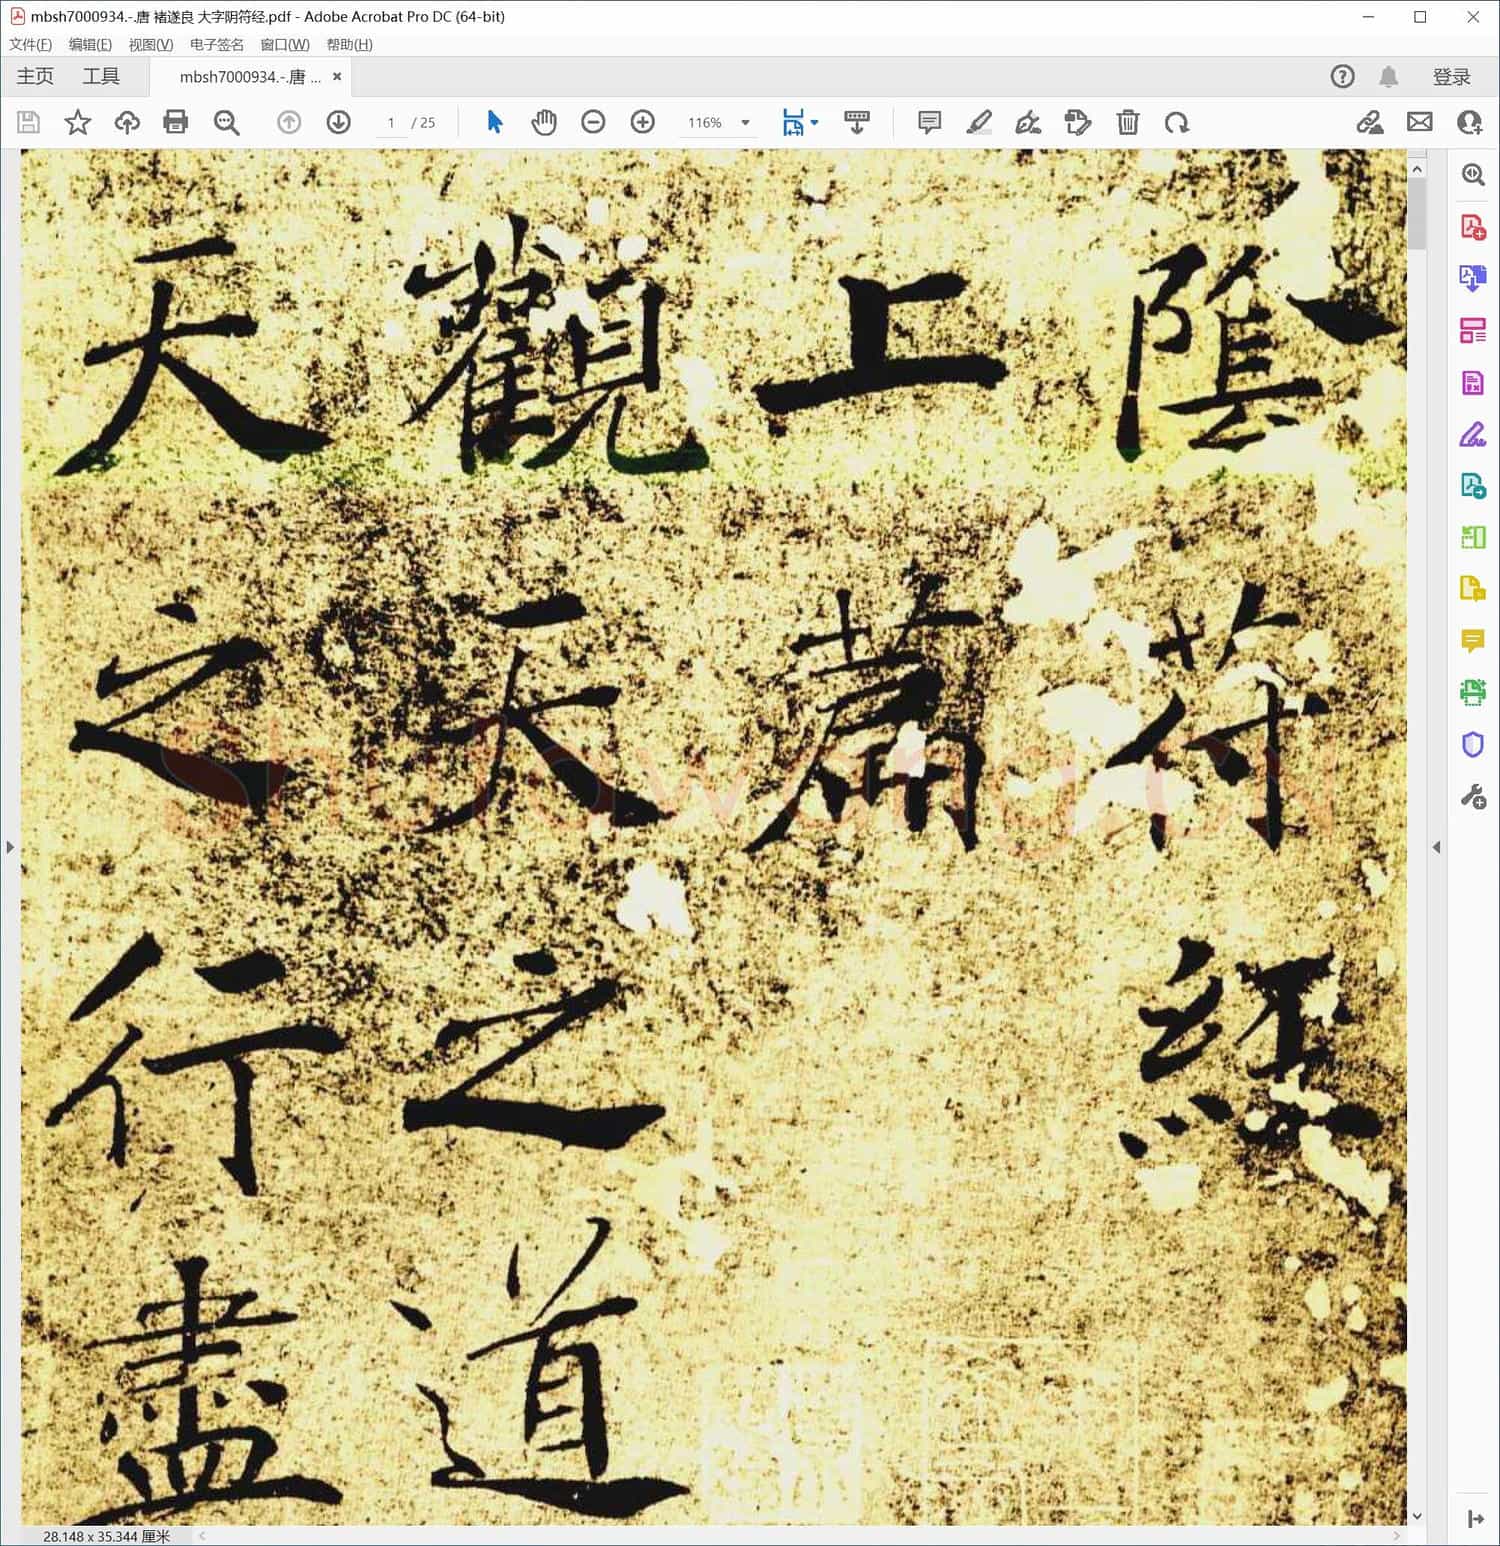 mbsh7000934.-.唐 褚遂良 大字阴符经.pdf - Adobe Acrobat Pro DC (64-bit)
文件(F) 编辑(E) 视图(V) 电子签名 窗口(W) 帮助(H)
主页 工具 mbsh7000934.-.唐 ... × 登录
1 / 25 116%
陰符經
上篇
觀天之道
天之行盡
Shufawang.cn
28.148 x 35.344 厘米